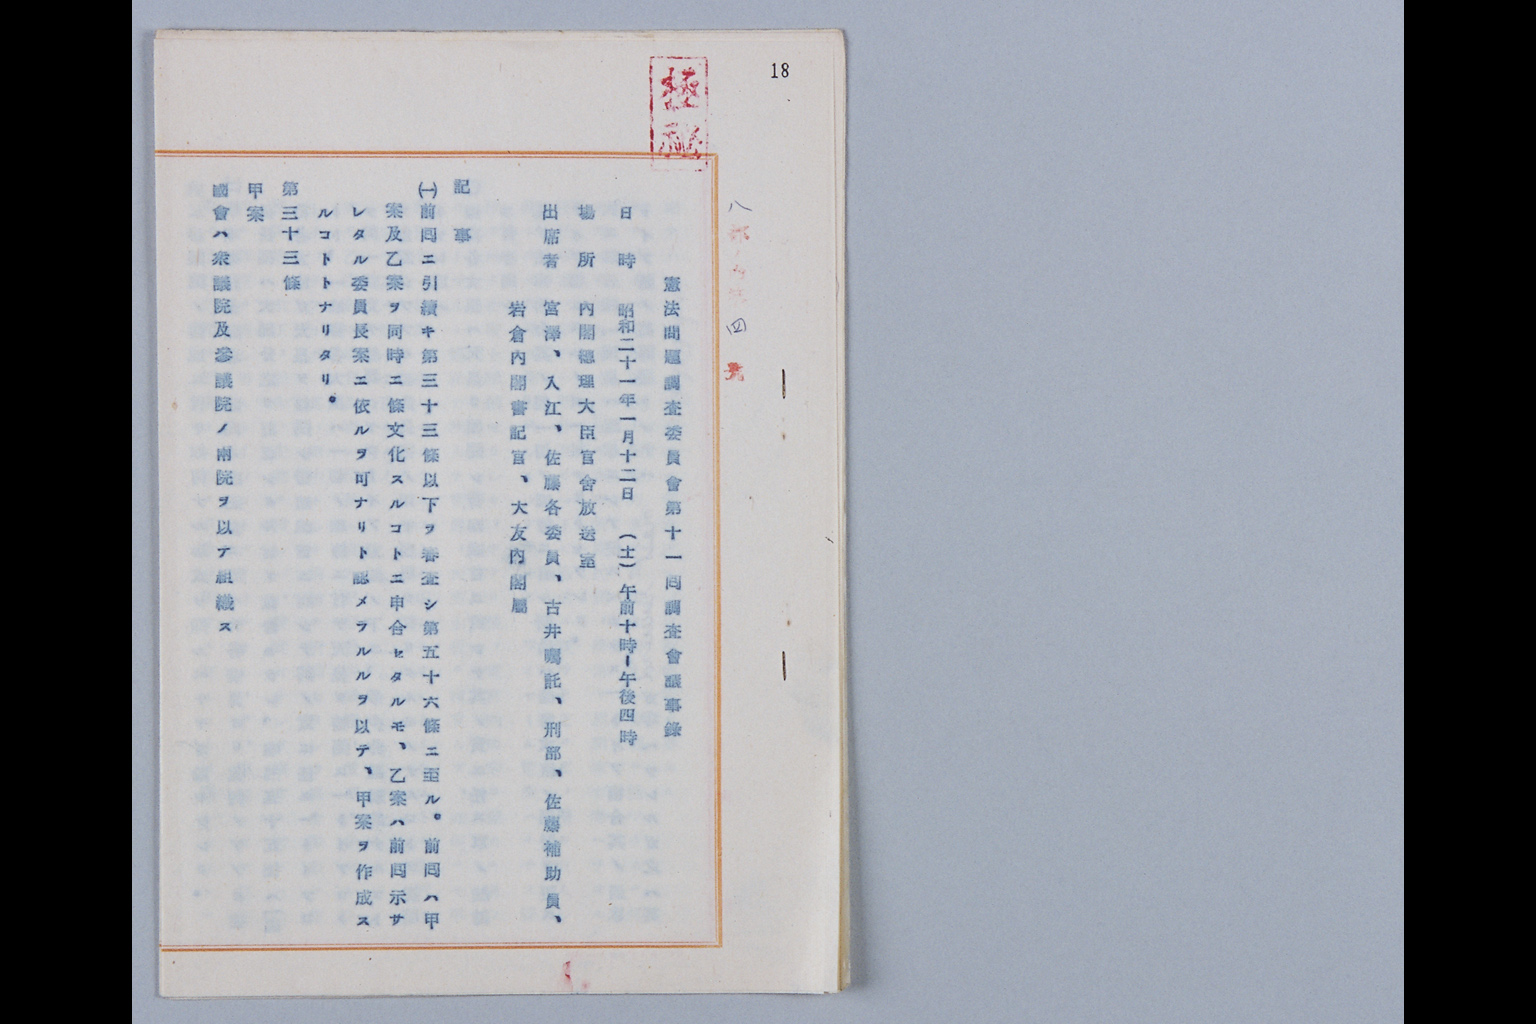 18
極秘
八部ノ内第四號
憲法問題調査委員會第十一囘調査會議事錄
日　時　昭和二十一年一月十二日　（土）午前十時ー午後四時
場　所　內閣總理大臣官舍放送室
出席者　宮澤、入江、佐藤各委員、古井囑託、刑部、佐藤補助員、
岩倉內閣書記官、大友內閣屬
記　事
㈠前囘ニ引續キ第三十三條以下ヲ審査シ第五十六條ニ至ル。前囘ハ甲
案及乙案ヲ同時ニ條文化スルコトニ申合セタルモ、乙案ハ前囘示サ
レタル委員長案ニ依ルヲ可ナリト認メラルルヲ以テ、甲案ヲ作成ス
ルコトトナリタリ。
第三十三條
甲案
國會ハ衆議院及參議院ノ兩院ヲ以テ組織ス